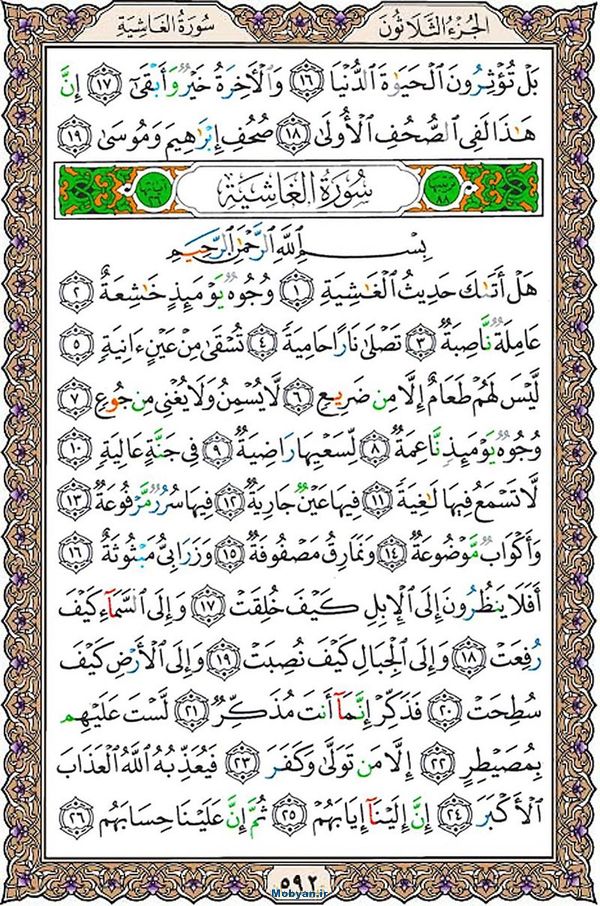 الجُزءُ الثَّلَاثُونَ سُورَةُ الغَاشِيَةِ
بَلْ تُؤْثِرُونَ الْحَيَوٰةَ الدُّنْيَا ١٦ وَالْأَخِرَةُ خَيْرٌ وَأَبْقَىٰٓ ١٧ إِنَّ
هَـٰذَا لَفِى الصُّحُفِ الْأُولَىٰ ١٨ صُحُفِ إِبْرَٰهِيمَ وَمُوسَىٰ ١٩
ترتيبها ٨٨ سُورَةُ الغَاشِيَةِ آياتها ٢٦
بِسْمِ اللَّهِ الرَّحْمَـٰنِ الرَّحِيمِ
هَلْ أَتَىٰكَ حَدِيثُ الْغَـٰشِيَةِ ١ وُجُوهٌ يَوْمَئِذٍ خَـٰشِعَةٌ ٢
عَامِلَةٌ نَّاصِبَةٌ ٣ تَصْلَىٰ نَارًا حَامِيَةً ٤ تُسْقَىٰ مِنْ عَيْنٍ ءَانِيَةٍ ٥
لَّيْسَ لَهُمْ طَعَامٌ إِلَّا مِن ضَرِيعٍ ٦ لَّا يُسْمِنُ وَلَا يُغْنِى مِن جُوعٍ ٧
وُجُوهٌ يَوْمَئِذٍ نَّاعِمَةٌ ٨ لِّسَعْيِهَا رَاضِيَةٌ ٩ فِى جَنَّةٍ عَالِيَةٍ ١٠
لَّا تَسْمَعُ فِيهَا لَـٰغِيَةً ١١ فِيهَا عَيْنٌ جَارِيَةٌ ١٢ فِيهَا سُرُرٌ مَّرْفُوعَةٌ ١٣
وَأَكْوَابٌ مَّوْضُوعَةٌ ١٤ وَنَمَارِقُ مَصْفُوفَةٌ ١٥ وَزَرَابِىُّ مَبْثُوثَةٌ ١٦
أَفَلَا يَنظُرُونَ إِلَى الْإِبِلِ كَيْفَ خُلِقَتْ ١٧ وَإِلَى السَّمَآءِ كَيْفَ
رُفِعَتْ ١٨ وَإِلَى الْجِبَالِ كَيْفَ نُصِبَتْ ١٩ وَإِلَى الْأَرْضِ كَيْفَ
سُطِحَتْ ٢٠ فَذَكِّرْ إِنَّمَآ أَنتَ مُذَكِّرٌ ٢١ لَّسْتَ عَلَيْهِم
بِمُصَيْطِرٍ ٢٢ إِلَّا مَن تَوَلَّىٰ وَكَفَرَ ٢٣ فَيُعَذِّبُهُ اللَّهُ الْعَذَابَ
الْأَكْبَرَ ٢٤ إِنَّ إِلَيْنَآ إِيَابَهُمْ ٢٥ ثُمَّ إِنَّ عَلَيْنَا حِسَابَهُم ٢٦
٥٩٢
Mobyan.ir